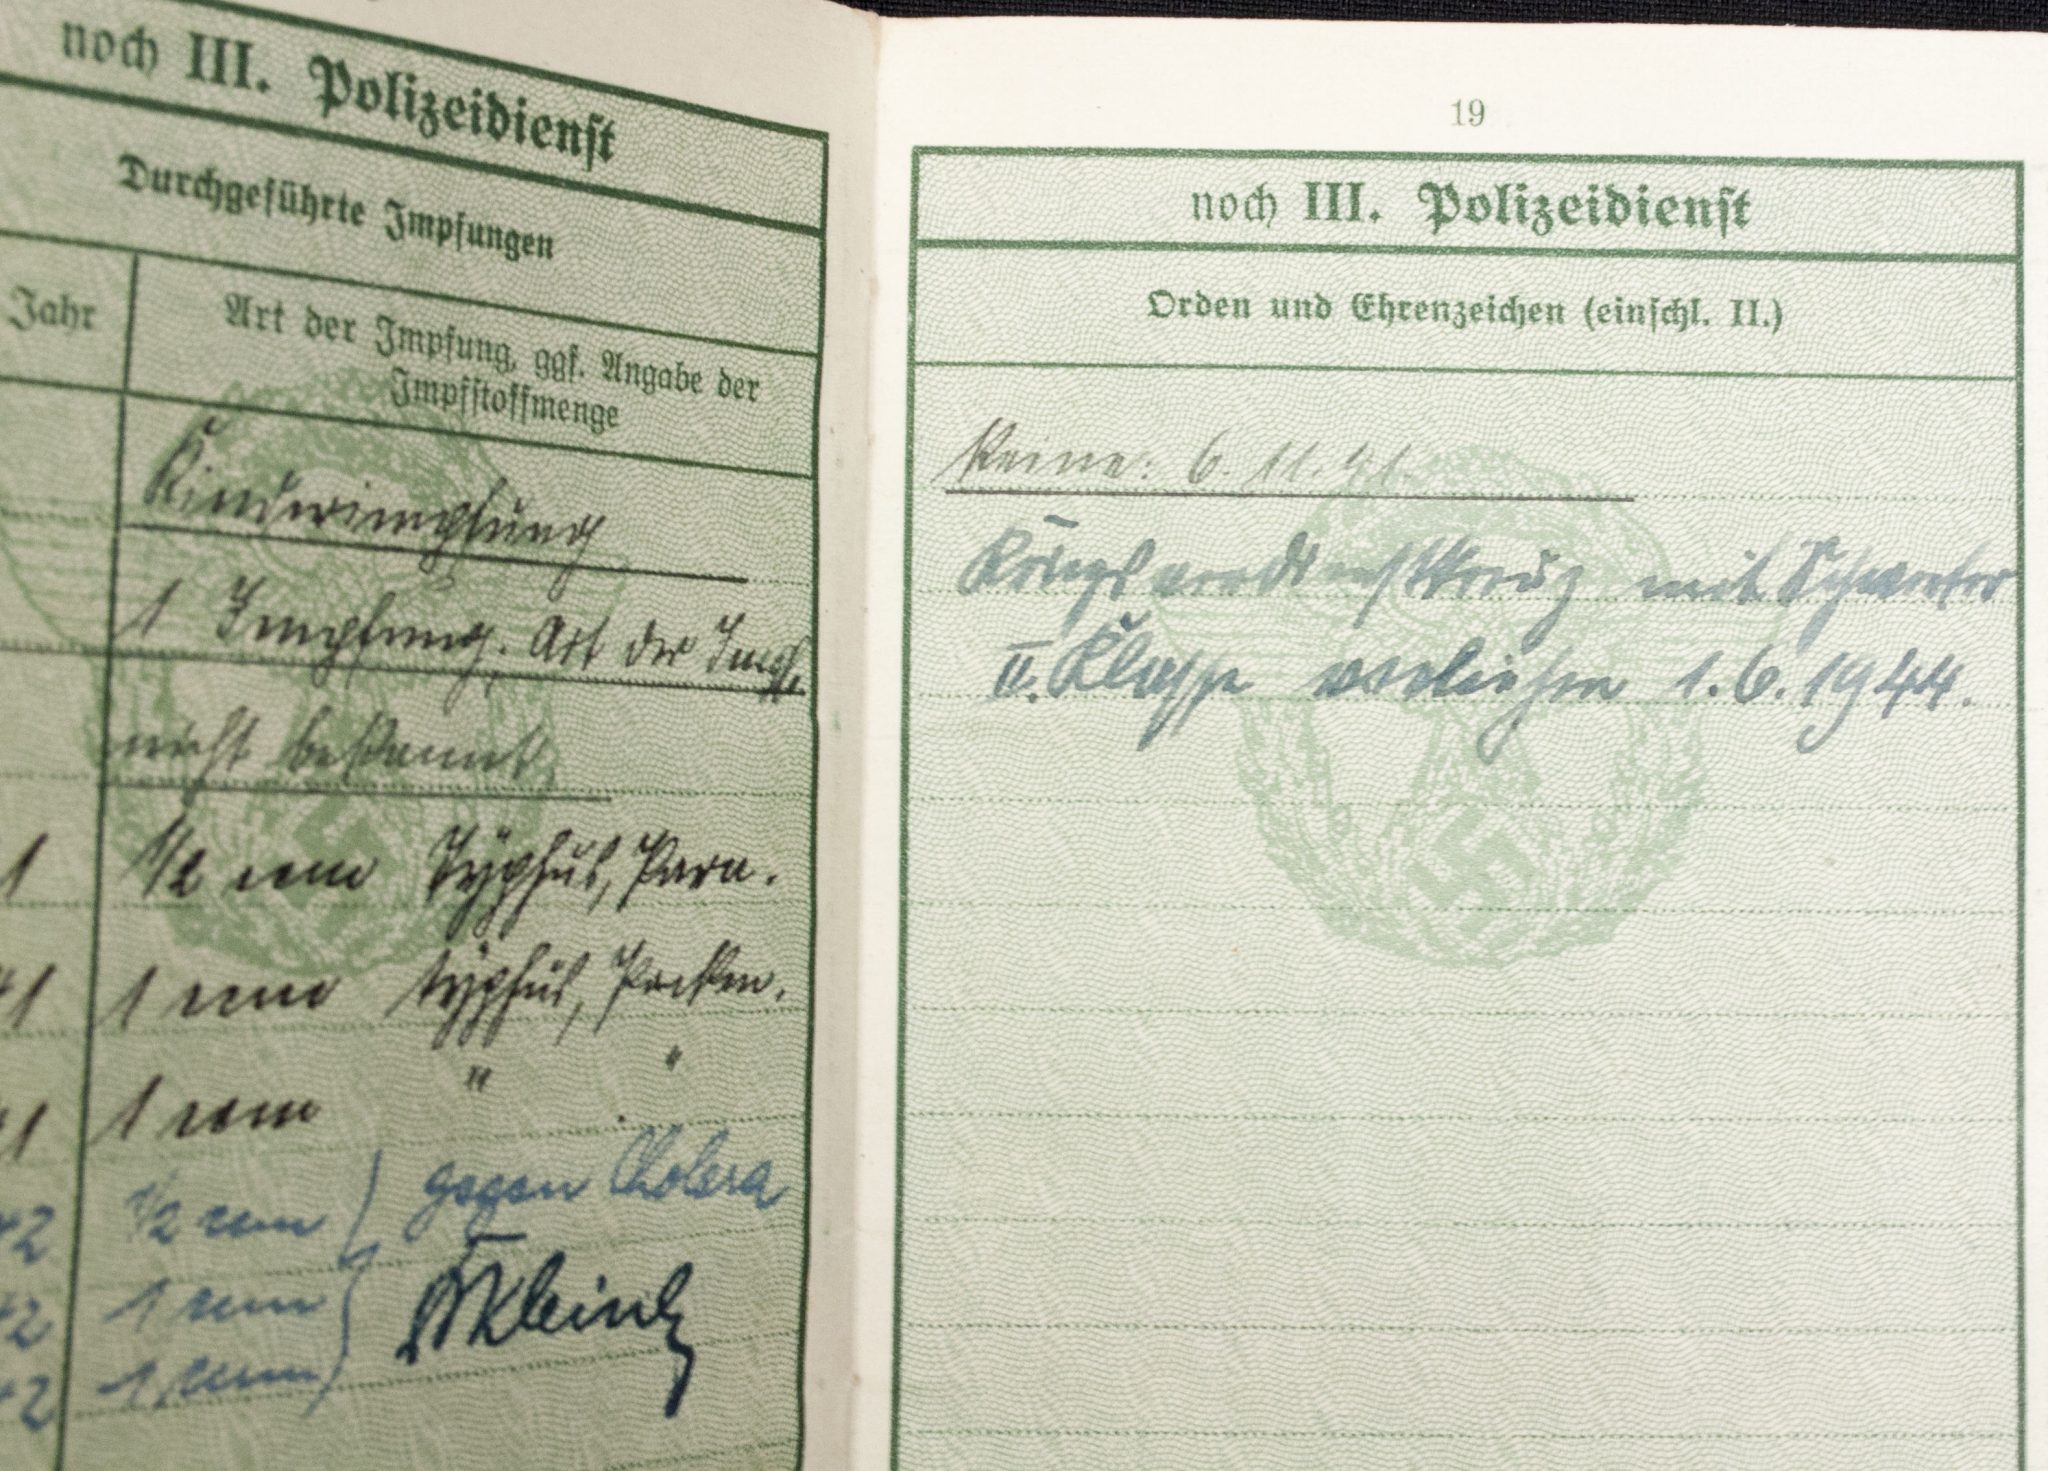 noch III. Polizeidienst
Durchgeführte Impfungen
Jahr
Art der Impfung, ggf. Angabe der
Impfstoffmenge
Kinderimpfung
1 Impfung. Art der Impf.
nicht bekannt
1 1/2 ccm Typhus, Para-
41 1 ccm typhus, Pocken.
41 1 ccm " "
42 1/2 ccm gegen Cholera
42 1 ccm
42 1 ccm
19
noch III. Polizeidienst
Orden und Ehrenzeichen (einschl. II.)
Keine: 6.11.41.
Kriegsverdienstkreuz mit Schwerter
II. Klasse verliehen 1.6.1944.